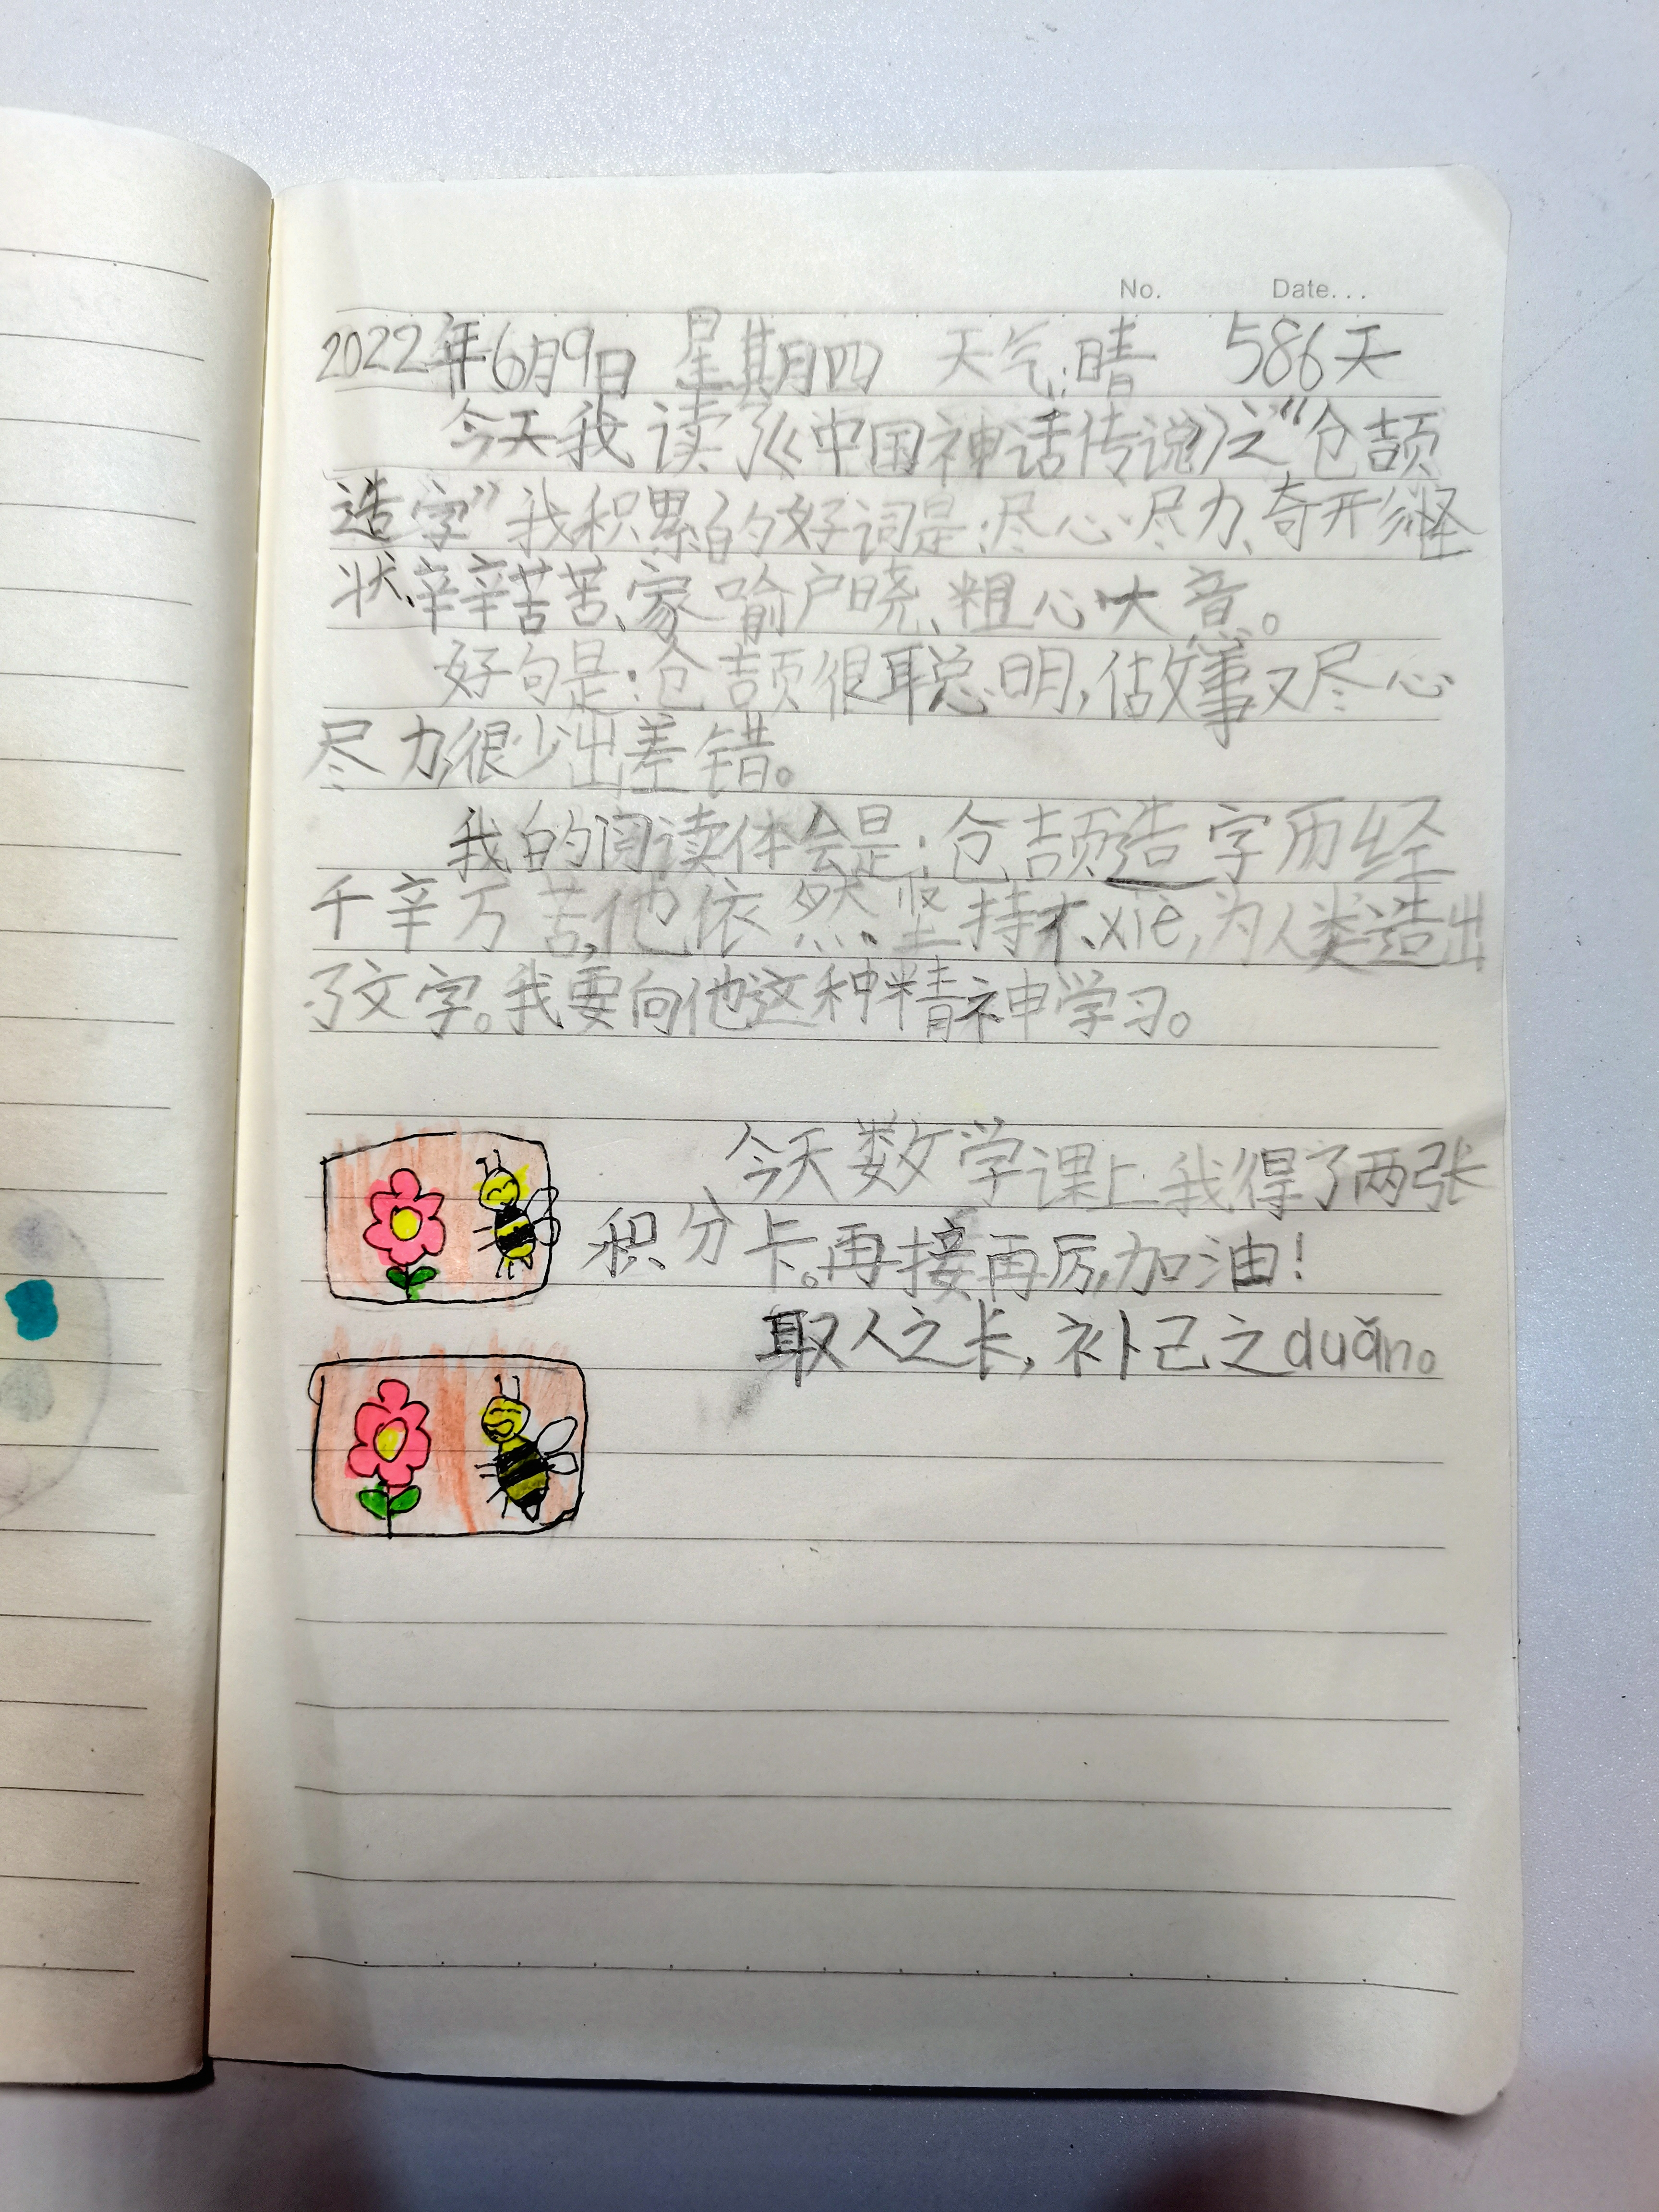 No. Date...
2022年6月9日 星期四 天气:晴 586天
今天我读了《中国神话传说》之“仓颉
造字”我积累的好词是:尽心尽力、奇形怪
状、辛辛苦苦、家喻户晓、粗心大意。
好句是:仓颉很聪明,做事又尽心
尽力,很少出差错。
我的阅读体会是:仓颉造字历经
千辛万苦,他依然坚持不xiè,为人类造出
了文字。我要向他这种精神学习。
今天数学课上我得了两张
积分卡。再接再厉,加油!
取人之长,补己之duǎn。